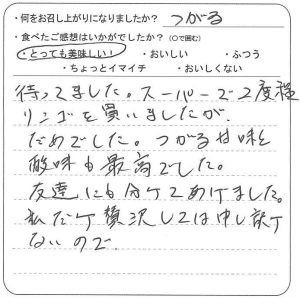 ・何をお召し上がりになりましたか？ つがる
・食べたご感想はいかがでしたか？（○で囲む）
・とっても美味しい！ ・おいしい ・ふつう
・ちょっとイマイチ ・おいしくない
待ってました。スーパーで2度程
リンゴを買いましたが、
だめでした。つがる甘味と
酸味も最高でした。
友達にも分けてあげました。
私だけ贅沢しては申し訳け
ないので